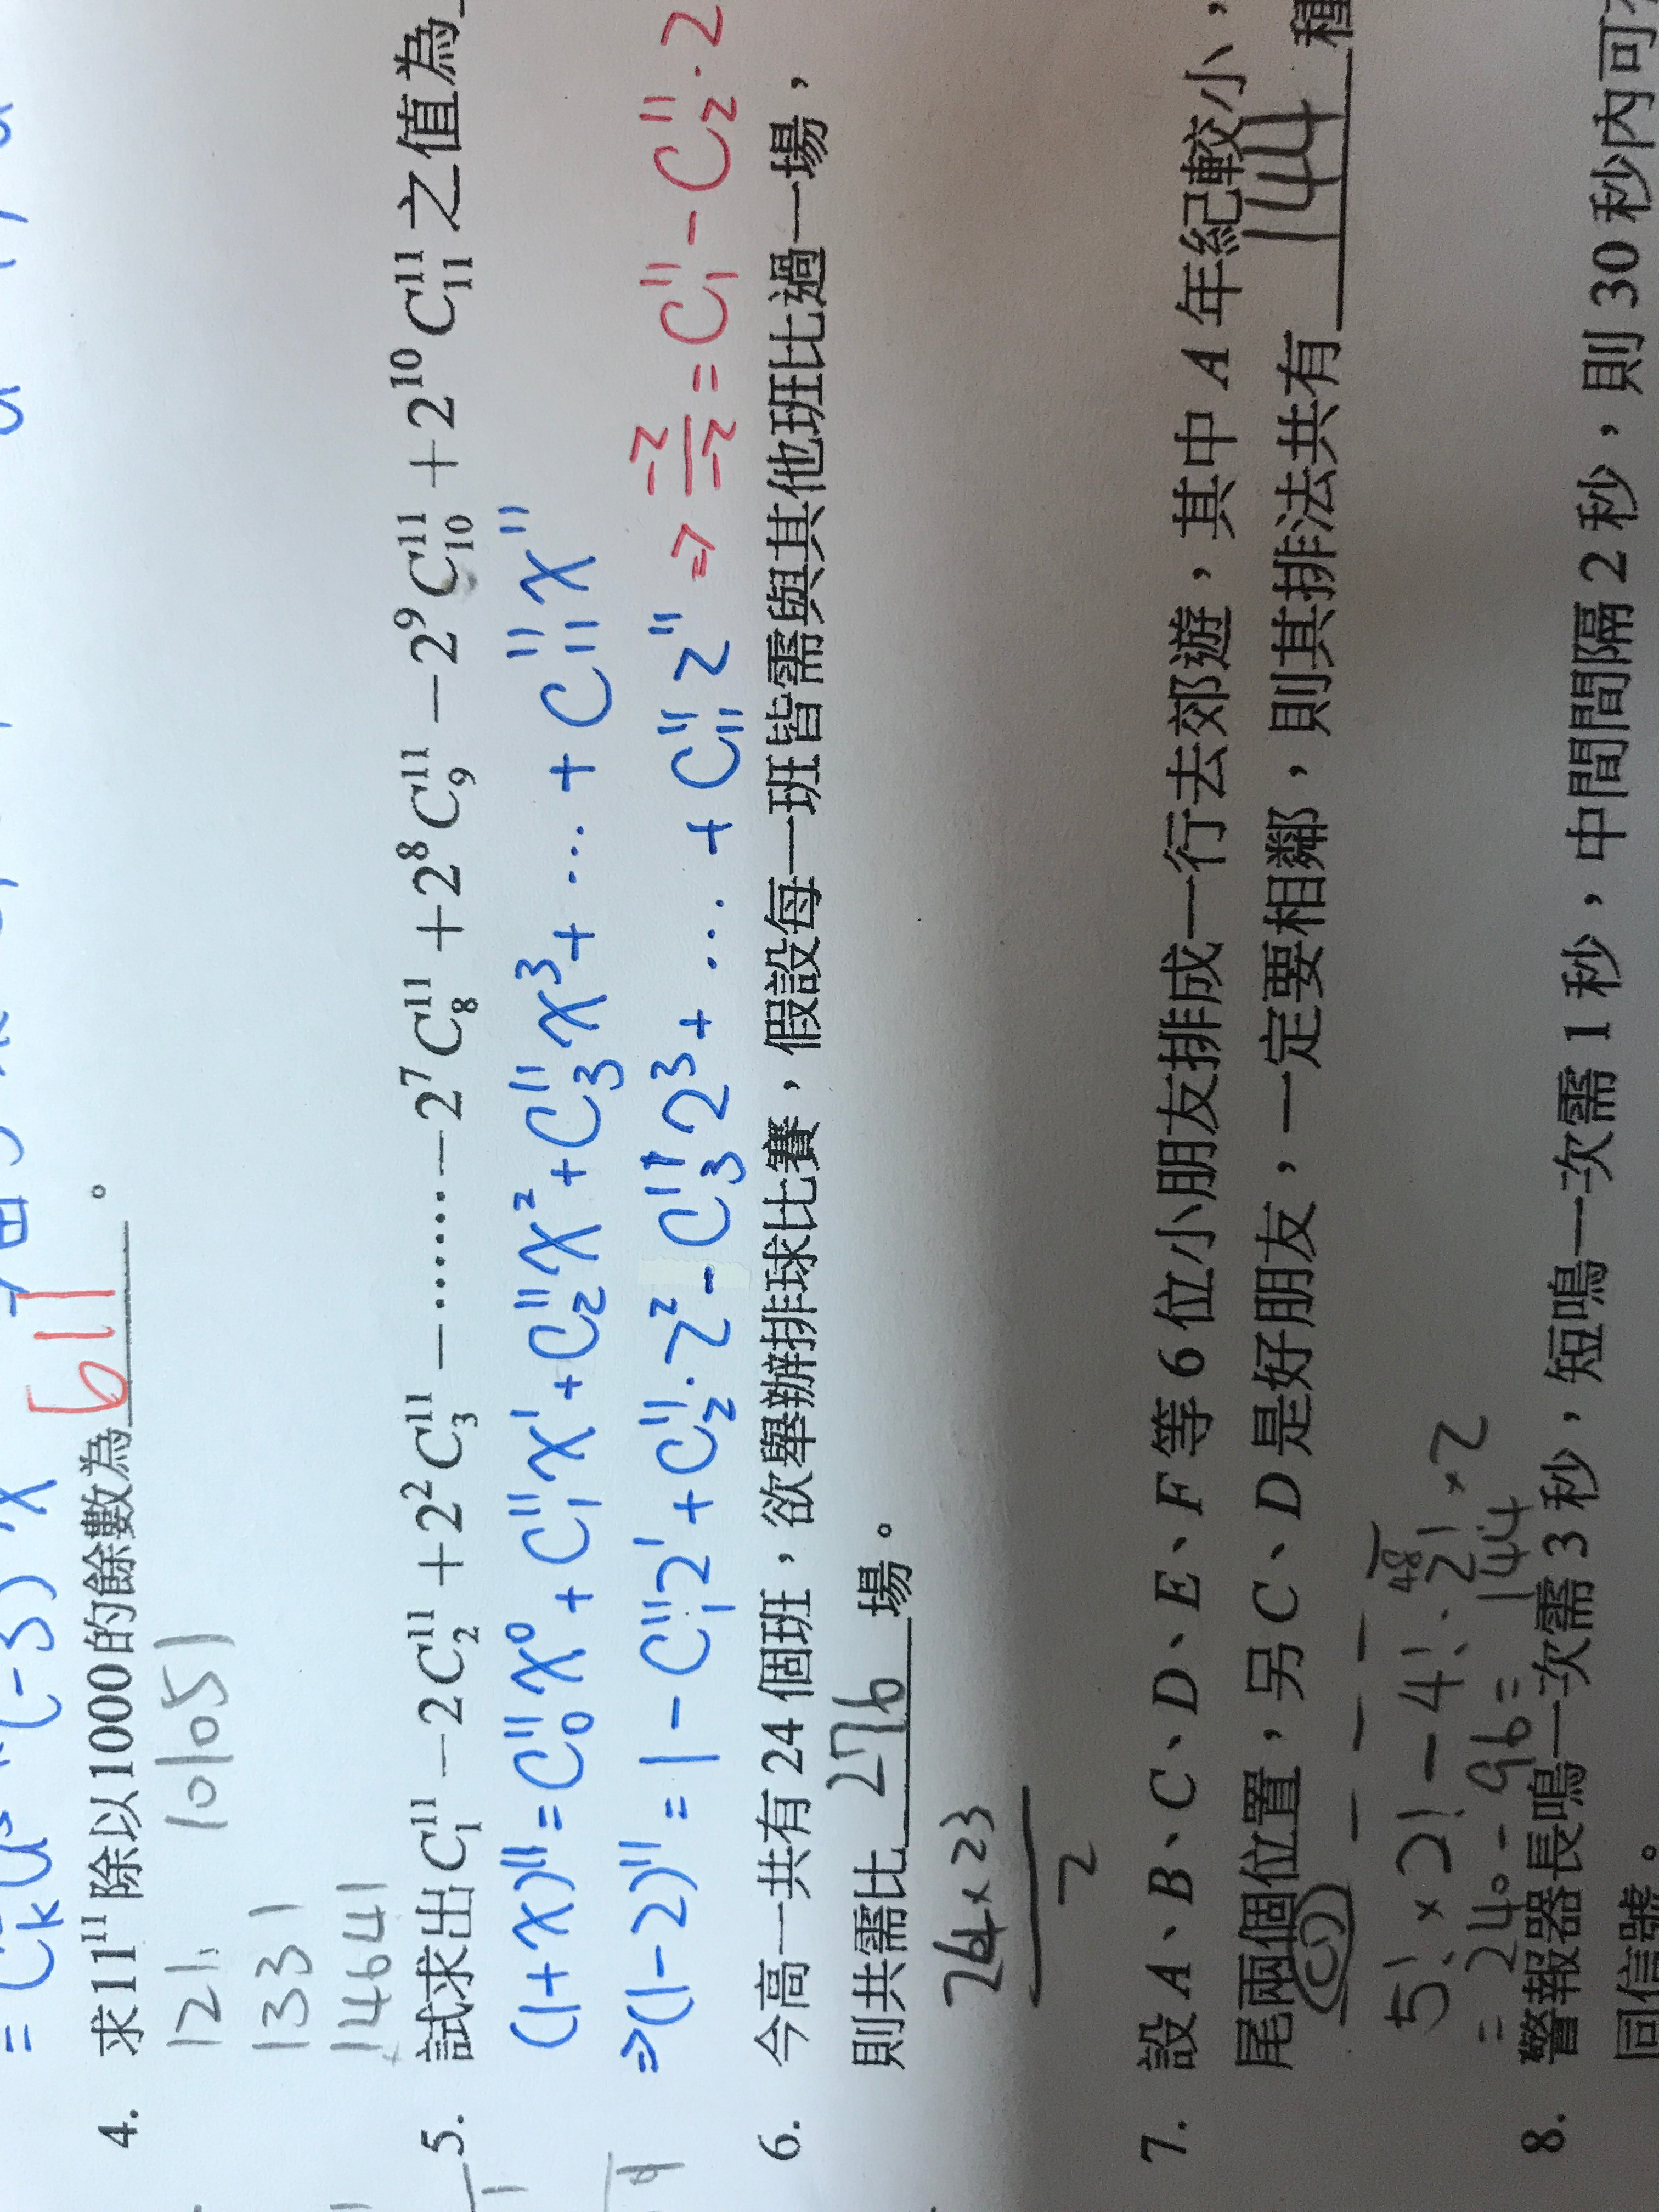 = C k (-3) x
4. 求11¹¹除以1000的餘數為 611 。
121, 101051
1331
14641
5. 試求出C₁¹¹−2C₂¹¹+2²C₃¹¹−………−2⁷C₈¹¹+2⁸C₉¹¹−2⁹C₁₀¹¹+2¹⁰C₁₁¹¹之值為
(1+x)¹¹=C₀¹¹x⁰+C₁¹¹x¹+C₂¹¹x²+C₃¹¹x³+...+C₁₁¹¹x¹¹
⇒(1-2)¹¹=1-C₁¹¹2¹+C₂¹¹·2²-C₃¹¹2³+...+C₁₁¹¹2¹¹ ⇒ -2/-2=C₁¹¹-C₂¹¹·2
6. 今高一共有24個班，欲舉辦排球比賽，假設每一班皆需與其他班比過一場，
則共需比 276 場。
24×23
2
7. 設A、B、C、D、E、F等6位小朋友排成一行去郊遊，其中A年紀較小，
尾兩個位置，另C、D是好朋友，一定要相鄰，則其排法共有 144 種
5!×2!-4!·2!×2
48
=240-96=144
8. 警報器長鳴一次需3秒，短鳴一次需1秒，中間間隔2秒，則30秒內可
同信號。